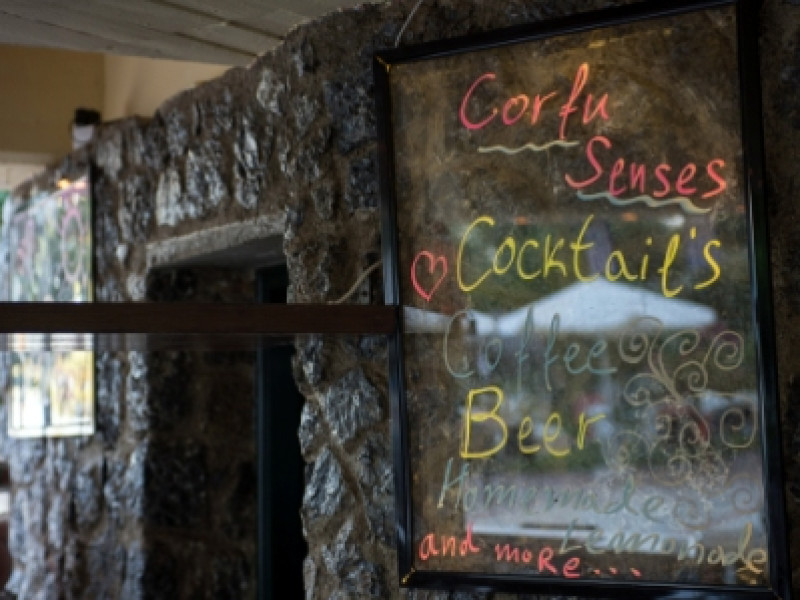 Corfu
Senses
Cocktail's
Coffee
Beer
Homemade
Lemonade
and more...